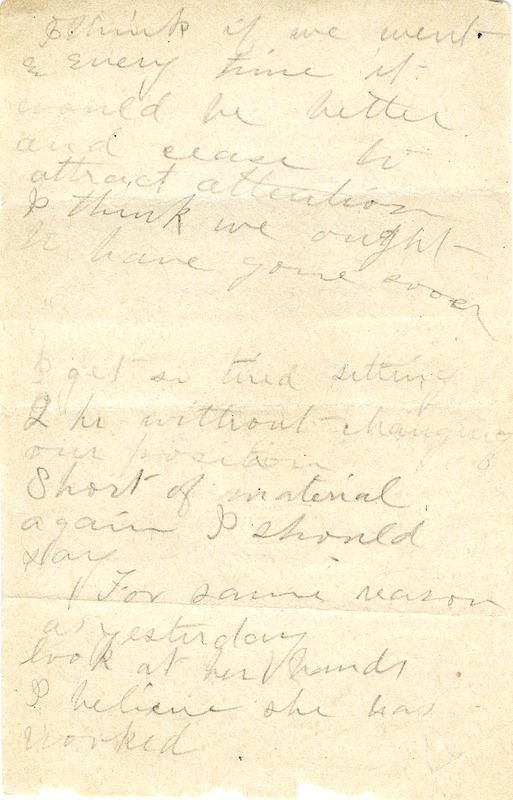 I think if we went
& every time it
would be better
and cease to
attract attention
I think we ought
to have gone over
I get so tired setting
2 hr without changing
our position
Short of material
again I should
say
For same reason
as yesterday
look at her hands
I believe she has
worked